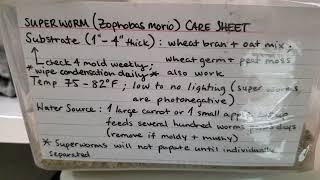 SUPERWORM (Zophobas morio) CARE SHEET
Substrate (1"-4" thick): wheat bran + oat mix,
↳ check 4 mold weekly; wheat germ + peat moss
* wipe condensation daily * also work
Temp 75-82°F; low to no lighting (super worms
are photonegative)
Water Source: 1 large carrot or 1 small apple
feeds several hundred worms days
(remove if moldy + mushy)
* Superworms will not pupate until individually
separated